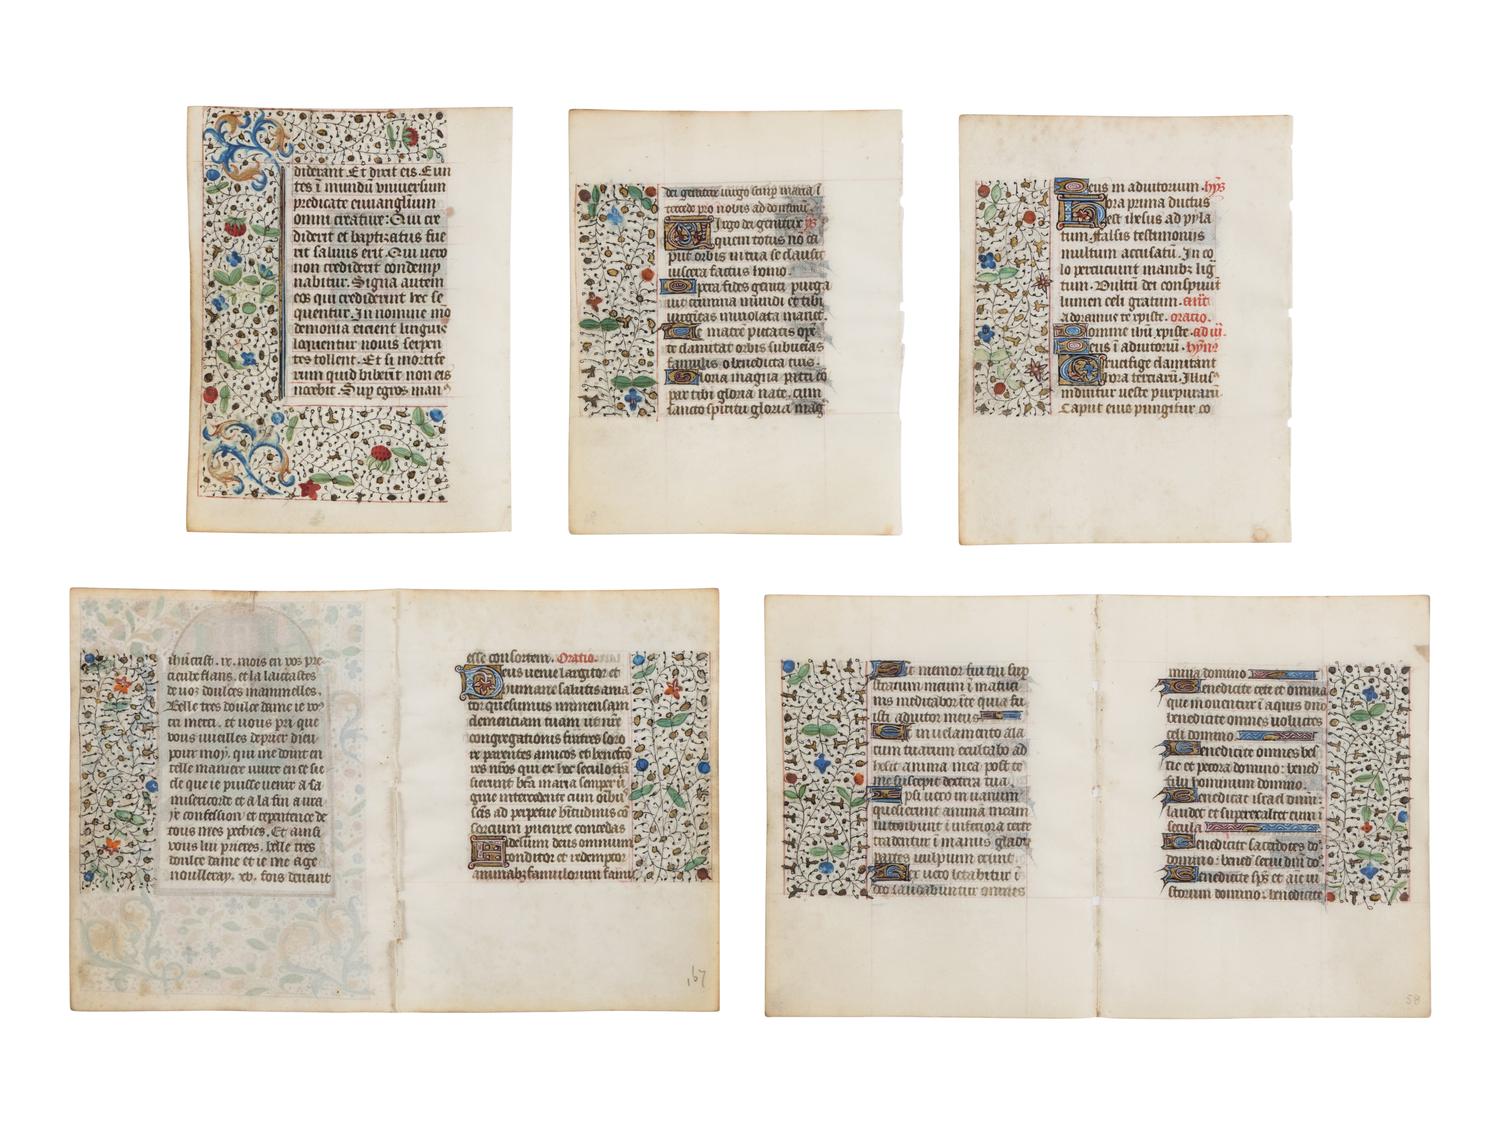 diderant. Et dixit eis. Eun
tes i mundu vniuersum
predicate euuanglium
omni creature: Qui cre
diderit et baptizatus fue
rit saluus erit. Qui uero
non crediderit condemp
nabitur. Signa autem
eos qui crediderint hec se
quentur. In nomine meo
demonia eicient linguis
loquentur nouis serpen
tes tollent. Et si mortife
rum quid biberit non eis
nocebit. Sup egros man
dei genitrix uirgo semp maria i
tercede pro nobis ad dominu
Uirgo dei genitrix
quem totus no ca
pit orbis in tua se clausit
uiscera factus homo.
Uera fides geniti purga
uit crimina mundi et tibi
uirgitas inuiolata manet.
Te matre pietatis ope
te clamitat orbis subuenias
famulis o benedicta tuis.
Gloria magna patri co
par tibi gloria nate. cum
sancto spiritu gloria mag
Deus in adiutorium. hys
Hora prima ductus
est ihesus ad pyla
tum. falsis testimoniis
multum accusatu. In co
lo percucunt manib lig
tum. Vultu dei conspuunt
lumen celi gratum.
adoramus te xpiste. oratio.
Domine ihu xpiste. ad iii.
Deus i adiutoriu. hyn
Crucifige clamitant
hora terciaru. Illus
induitur ueste purpuraru
Caput eius pungitur co
ihucrist. ix. mois en vos pre
cieux flans. et la laictastes
de uoz doulces mammelles.
Belle tres doulce dame ie vo
cri merci. et uous pri que
vous vueilles deprier dieu
pour moy. qui me doint en
telle maniere uiure en ce sie
cle que ie puisse uenir a sa
misericorde et a la fin a vra
ye confession et repentence de
tous mes pechies. Et ainsi
vous lui prieres. Belle tres
doulce dame et ie me age
noulleray. xv. fois deuant
esse consortem. Oratio.
Deus uenie largitor et
humane salutis ama
tor quesumus inmensam
clementiam tuam ut nre
congregationis fratres soro
re parentes amicos et benefcto
res nros qui ex hoc seculo tra
sierunt bta maria semper ui
gine intercedente cum oibus
scis ad perpetue btitudinis co
sorcium puenire concedas
Fidelium deus omnium
conditor et redemptor
animabz famulorum famu
Sic memor fui tui sup
stratum meum i matuti
nis meditabor i te quia fu
isti adiutor meus
Et in uelamento ala
rum tuarum exultabo ad
hesit anima mea post te
me suscepit dextera tua
Ipsi uero in uanum
quesierunt anima meam
introibunt i inferiora terre
tradentur i manus gladii
partes uulpium erunt.
Rex uero letabitur i
deo laudabuntur omnes
domino
Benedicite cete et omnia
que mouentur i aquis dno
benedicite omnes uolucres
celi domino
Benedicite omnes bes
tie et pecora domino: bened
filii hominum domino.
Benedicat israel dnm:
laudet et superexaltet eum i
secula
Benedicite sacerdotes do
domino: bened serui dni do
Benedicite sps et aie iu
storum domino: benedicite
167
58